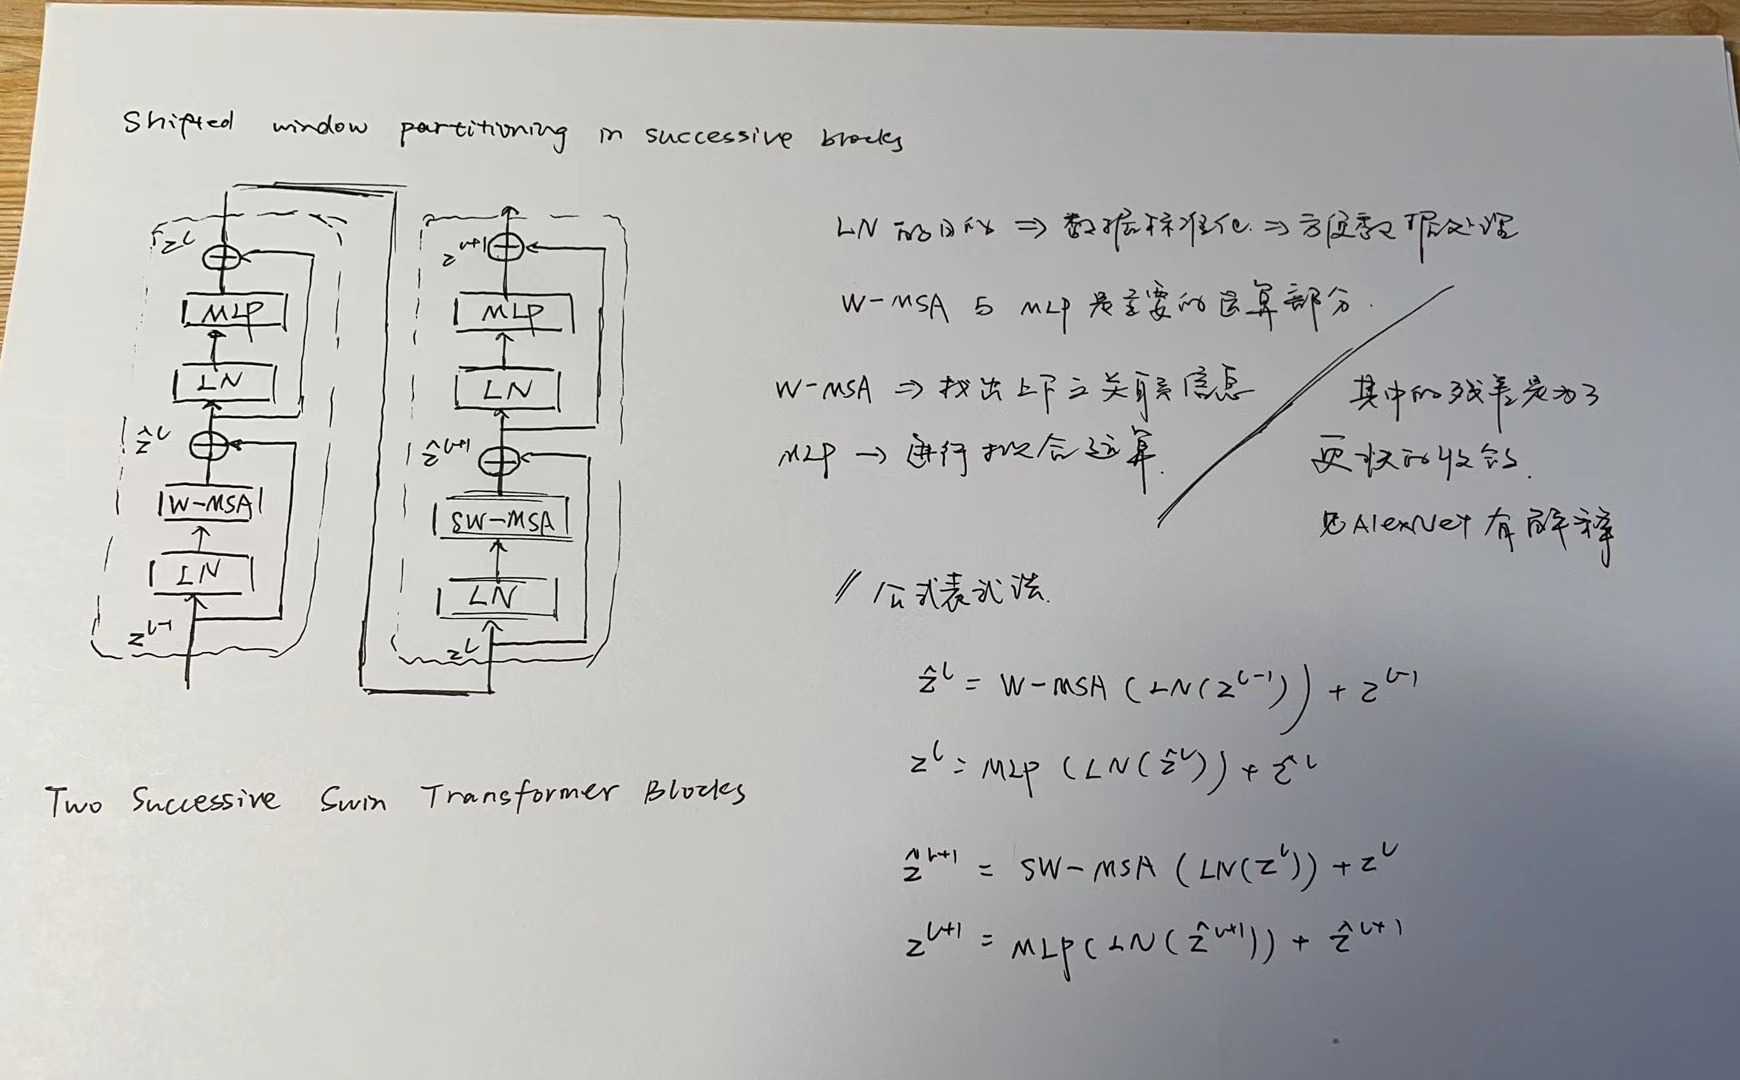 Shifted window partitioning in successive blocks
z^l
MLP
LN
ẑ^l
W-MSA
LN
z^{l-1}
z^{l+1}
MLP
LN
ẑ^{l+1}
SW-MSA
LN
z^l
Two Successive Swin Transformer Blocks
LN 的目的 ⇒ 数据标准化 ⇒ 方便数据处理
W-MSA 与 MLP 是主要的运算部分.
W-MSA ⇒ 找出上下文关联信息
MLP → 进行拟合运算.
其中的残差是为了
更快的收敛.
见AlexNet有解释
// 公式表式法.
ẑ^l = W-MSA (LN(z^{l-1})) + z^{l-1}
z^l = MLP (LN(ẑ^l)) + ẑ^l
ẑ^{l+1} = SW-MSA (LN(z^l)) + z^l
z^{l+1} = MLP(LN(ẑ^{l+1})) + ẑ^{l+1}